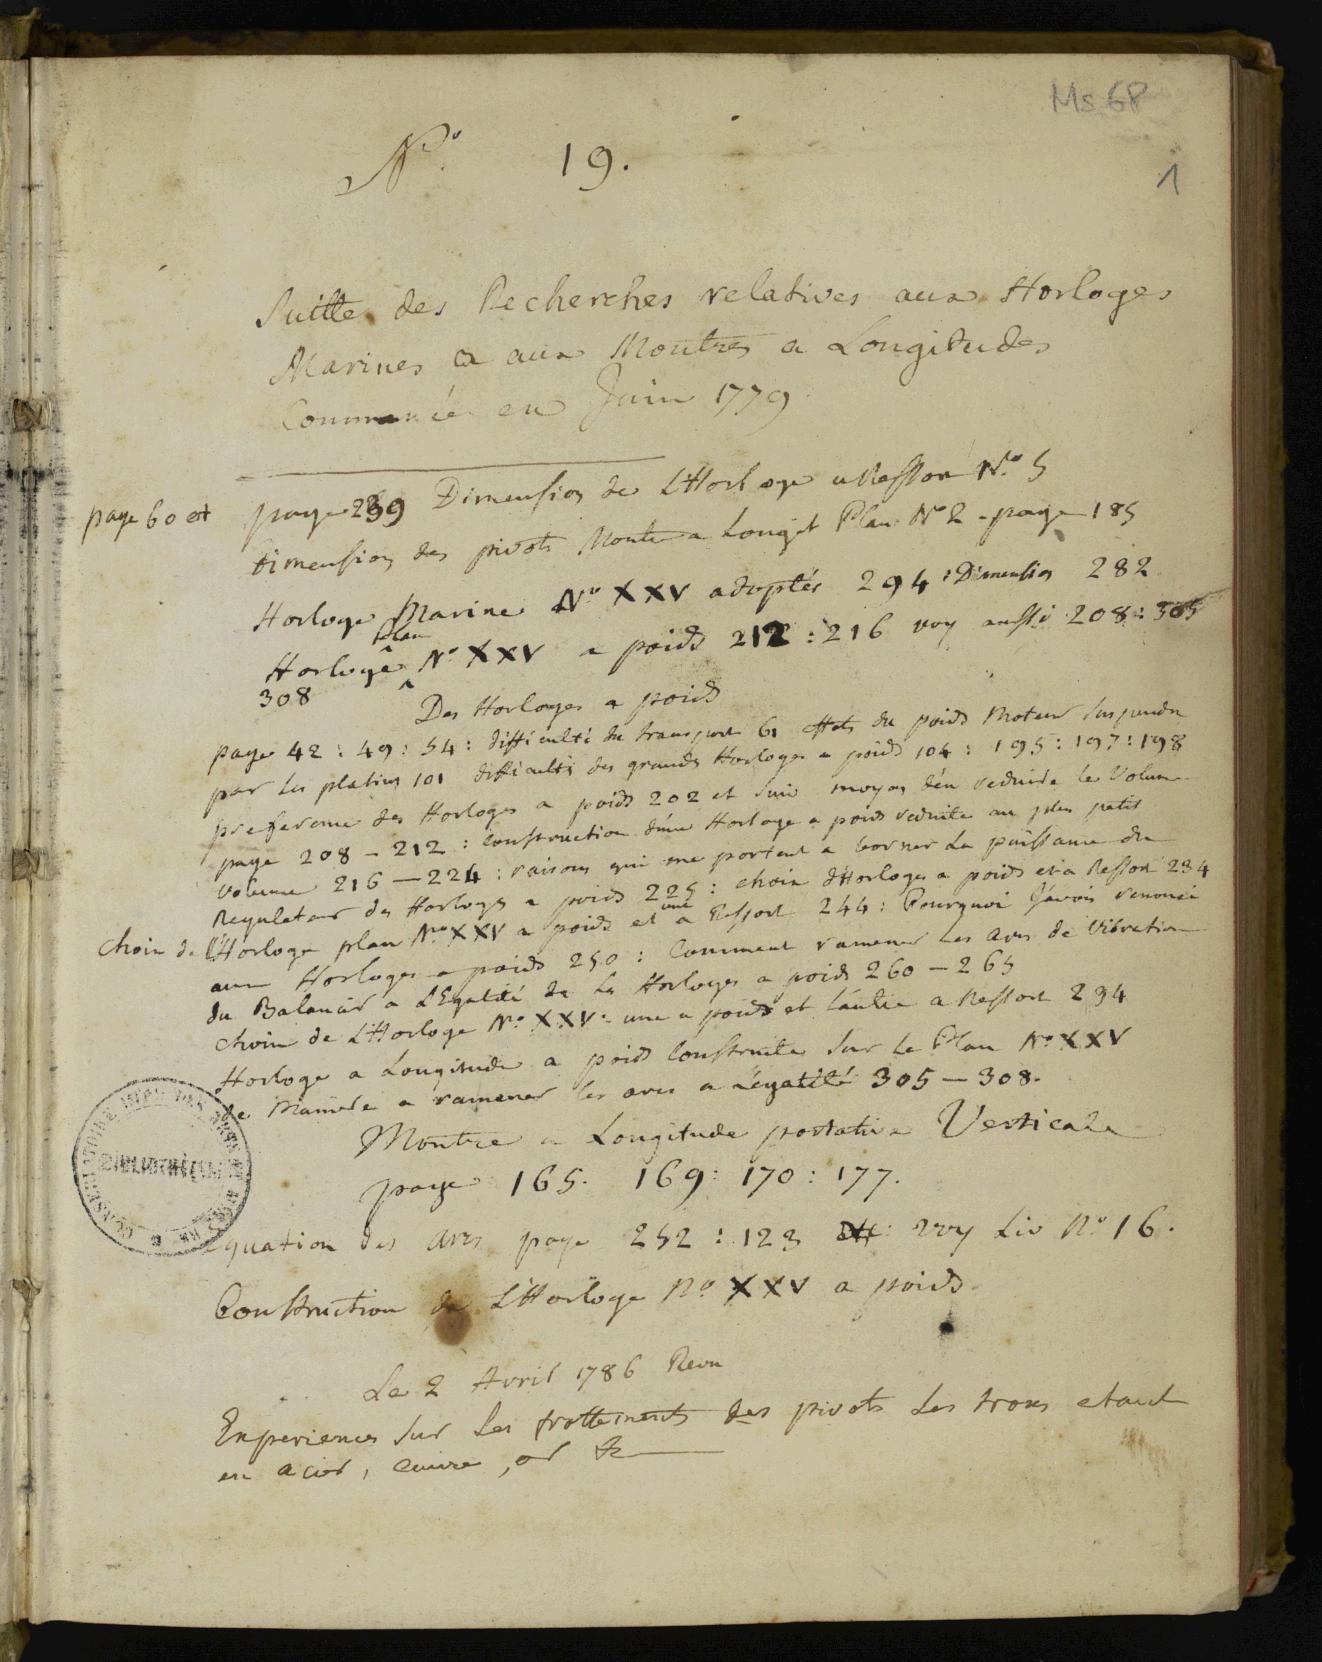 Ms 68
N.o 19.
1
Suitte des Recherches relatives aux Horloges
Marines et aux Montres a Longitudes
Commencé en Juin 1779
page 60 et page 239 Dimension de L'Horloge a Ressort N.o 5
Dimension des pivots Montre a Longit Plan N.o 2 - page 185
Horloge Marine N.o XXV adoptée 294 : Dimension 282
Horloge plan N.o XXV a poids 212 : 216 voy aussi 208 : 305
308
Des Horloges a poids
page 42 : 49 : 54 : difficulté du transport 61 effets du poids Moteur Suspendu
par les platines 101 difficultés des grandes Horloges a poids 104 : 195 : 197 : 198
preference des Horloges a poids 202 et Suiv moyen d'en reduire le Volume
page 208 - 212 : Construction d'une Horloge a poids reduite au plus petit
Volume 216 — 224 : raisons qui me portent a borner La puissance du
Regulateur des Horloges a poids 225 : choix d'Horloges a poids et a Ressort 234
Choix de l'Horloge plan N.o XXV a poids et une a Ressort 244 : Pourquoi J'avois renoncé
aux Horloges a poids 250 : Comment ramener Les arcs de Vibration
du Balancier a L'Egalité de Les Horloges a poids 260 — 265
Choix de L'Horloge N.o XXV. une a poids et L'autre a Ressort 294
Horloge a Longitude a poids Construite Sur Le Plan N.o XXV
de Maniere a ramener les arcs a L'égalité 305 — 308.
Montre a Longitude portative Verticale
page 165. 169 : 170 : 177.
Equation des arcs page 252 : 123 voy Liv N.o 16.
Construction de L'Horloge N.o XXV a poids
Le 2 Avril 1786 Revu
Experiences Sur Les frottements des pivots Les trous etant
en acier, cuivre, or &c
BIBLIOTHÈQUE